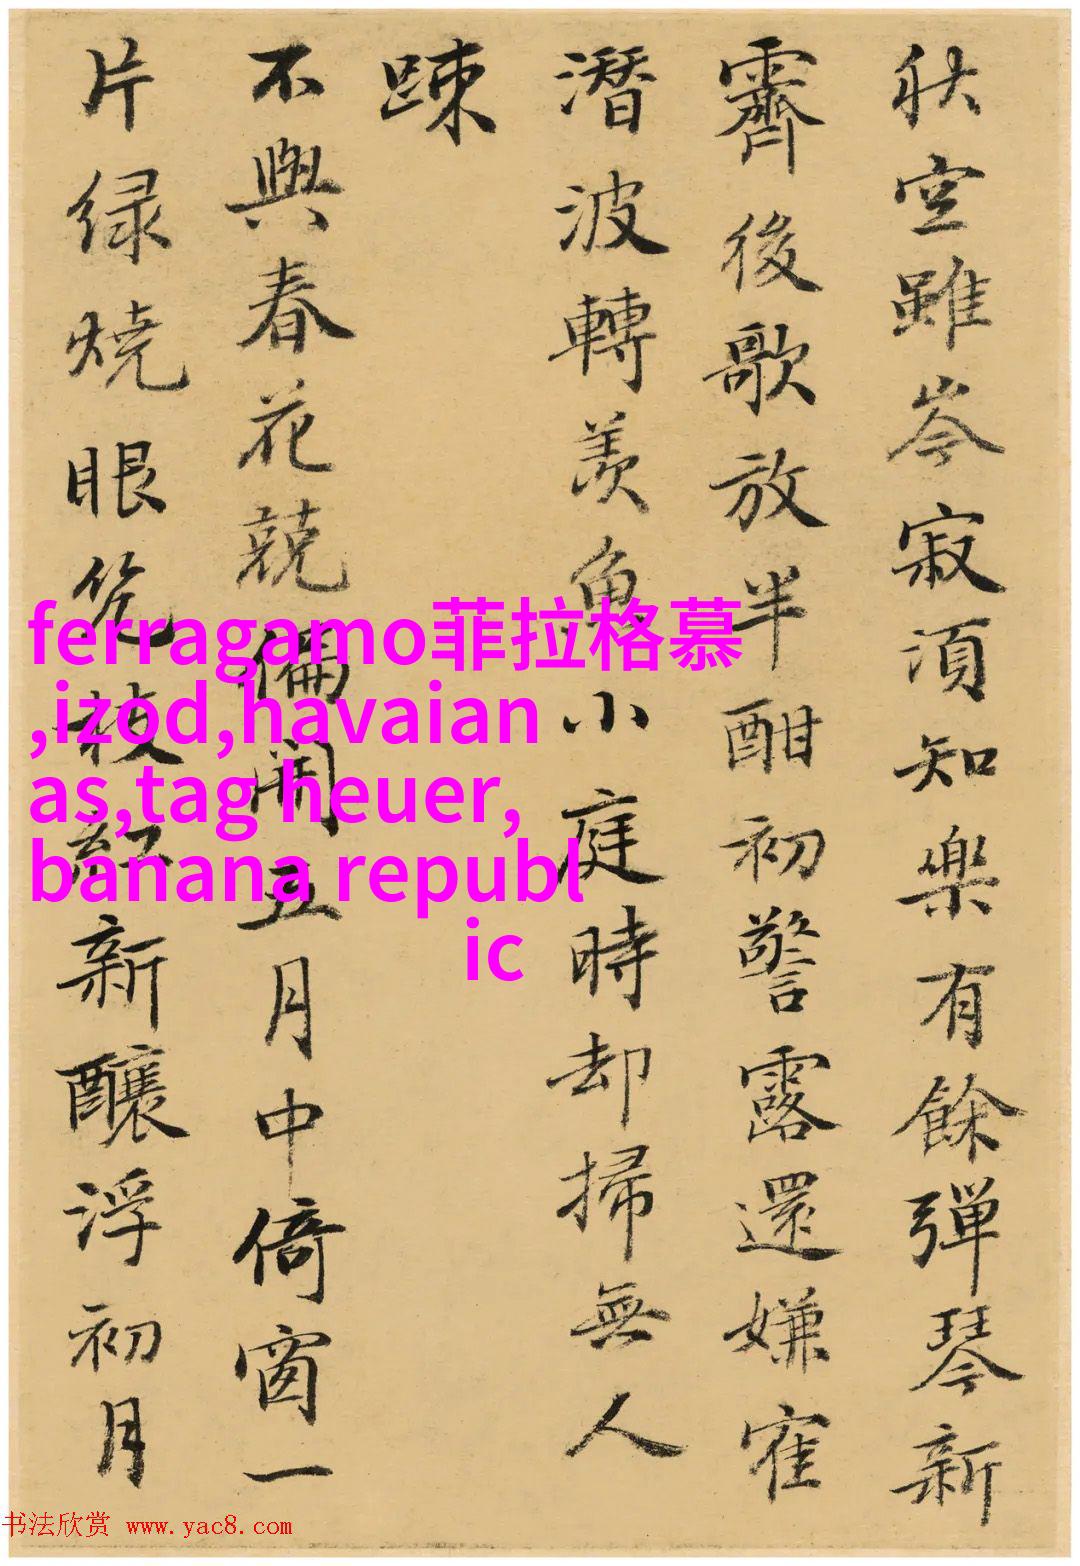 秋空雖岑寂須知樂有餘彈琴新
霽後歌放半酣初警露還嫌寉
潛波轉羨魚小庭時却掃無人
踈
不與春花競偏開五月中倚窗一
片绿燒眼幾枝紅新釀浮初月
ferragamo菲拉格慕
,izod,havaian
as,tag heuer,
banana republ
ic
书法欣赏 www.yac8.com